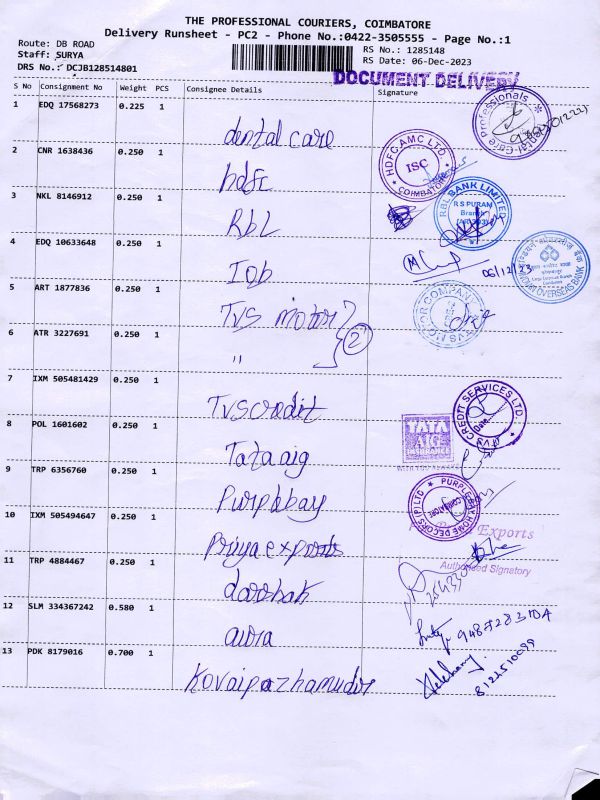 THE PROFESSIONAL COURIERS, COIMBATORE
Delivery Runsheet - PC2 - Phone No.:0422-3505555 - Page No.:1
Route: DB ROAD
Staff: SURYA
RS No.: 1285148
DRS No.: DCJB128514801
RS Date: 06-Dec-2023
DOCUMENT DELIVERY
S No Consignment No Weight PCS Consignee Details Signature
1 EDQ 17568273 0.225 1 dental care
2 CNR 1638436 0.250 1 hdfc
HDFC AMC LTD
ISC
COIMBATORE
3 NKL 8146912 0.250 1 RbL
RBL BANK LIMITED
R S PURAM
Branch
4 EDQ 10633648 0.250 1 Iob
06/12/23
INDIAN OVERSEAS BANK
5 ART 1877836 0.250 1 TVS motor
TVS MOTOR COMPANY
6 ATR 3227691 0.250 1 " 2
7 IXM 505481429 0.250 1 TVS credit
TVS CREDIT SERVICES LTD.
8 POL 1601602 0.250 1 Tata aig
TATA
AIG
INSURANCE
WITH YOU ALWAYS
9 TRP 6356760 0.250 1 Purplebay
PURPLEBAY HOME DECORS (P) LTD
COIMBATORE
10 IXM 505494647 0.250 1 Priya exports
Exports
Authorised Signatory
11 TRP 4884467 0.250 1 darshak
12 SLM 334367242 0.580 1 aura
13 PDK 8179016 0.700 1 Kovaipazhamudir
8122510099